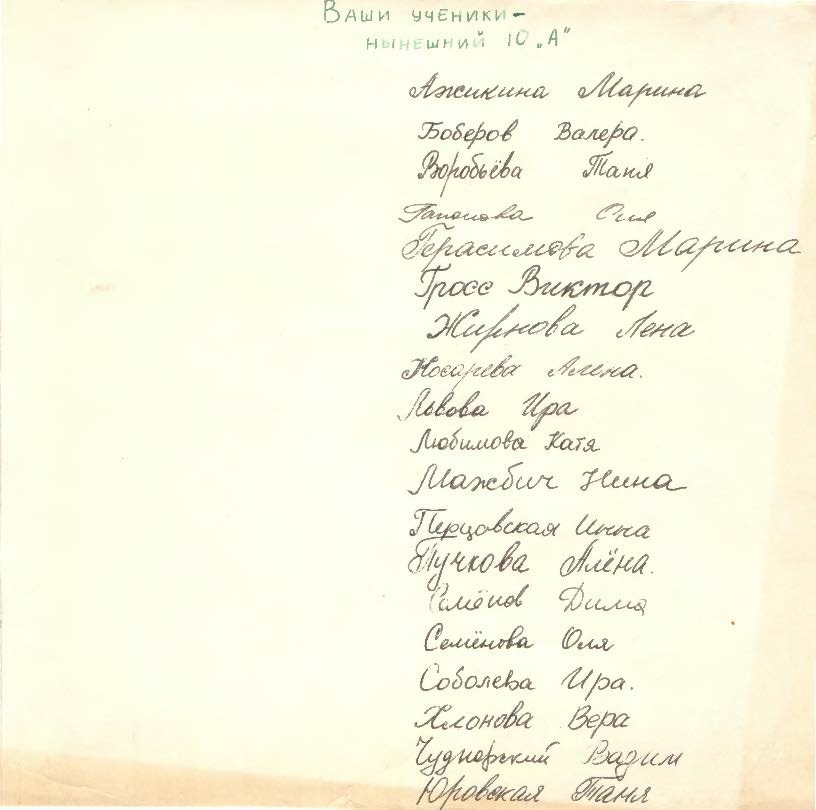 Ваши ученики -
нынешний 10 „А"
Ажикина Марина
Боберов Валера.
Воробьёва Таня
Гапонова Оля
Герасимова Марина
Гросс Виктор
Жирнова Лена
Косарева Алена.
Львова Ира
Любимова Катя
Мажбич Нина
Перцовская Инна
Пучкова Алёна.
Семёнов Дима
Семёнова Оля
Соболева Ира.
Хлонова Вера
Чудновский Вадим
Юровская Таня